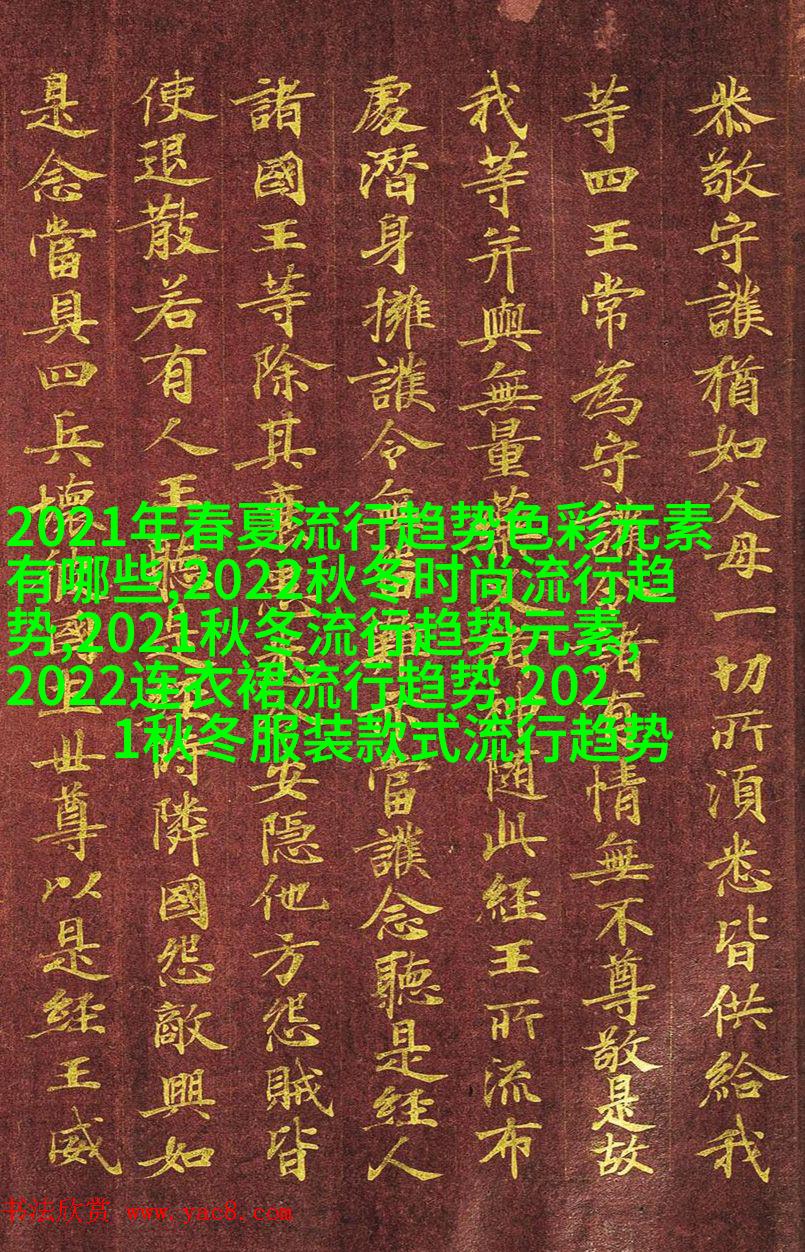 恭敬守護猶如父母一切所湏悉皆供給我
等四王常為守護諸有情無不尊敬是故
我等并與無量藥叉諸隨此經王所流布
處潛身擁護令無當護念聽是經人
諸國王等除其衰安隱他方怨賊皆
使退散若有人王聽時隣國怨敵興如
是念當具四兵壞彼國土世尊以是經王威
2021年春夏流行趋势色彩元素
有哪些,2022秋冬时尚流行趋
势,2021秋冬流行趋势元素,
2022连衣裙流行趋势,202
1秋冬服装款式流行趋势
书法欣赏 www.yac8.com